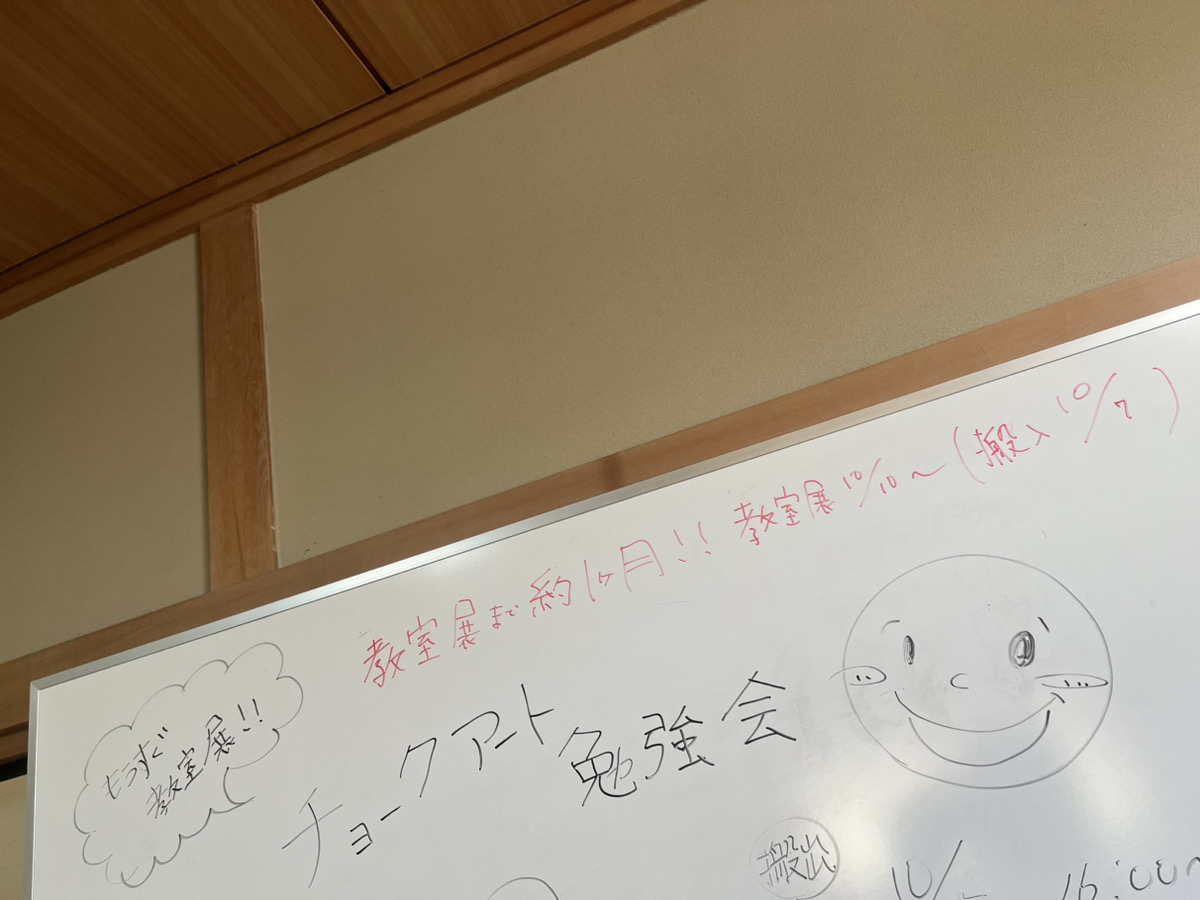 教室展まで約1ヶ月!! 教室展10/10~(搬入10/7)
もうすぐ
教室展!!
チョークアート勉強会
搬出 10/ 16:00~